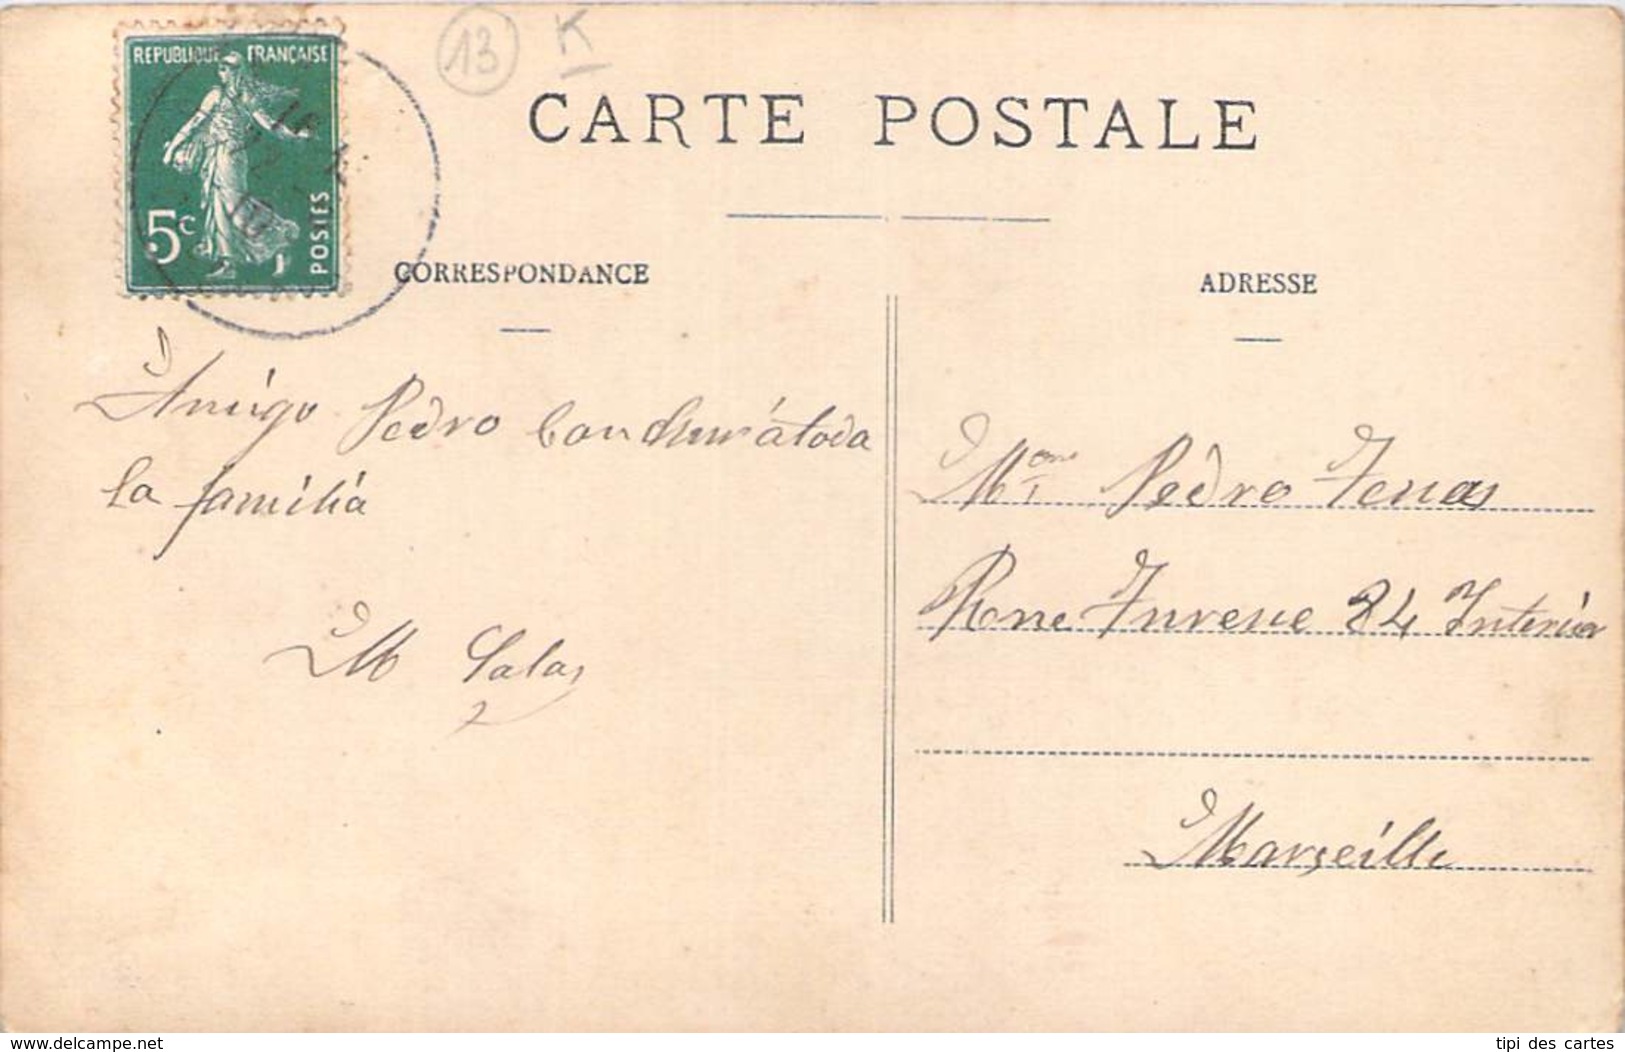 REPUBLIQUE FRANÇAISE
5c
POSTES
13 K
CARTE POSTALE
CORRESPONDANCE
ADRESSE
Amigo Pedro
la familia
M Salas
Mr Pedro Tenas
Rue Turene 84 Interior
Marseille
www.delcampe.net
tipi des cartes